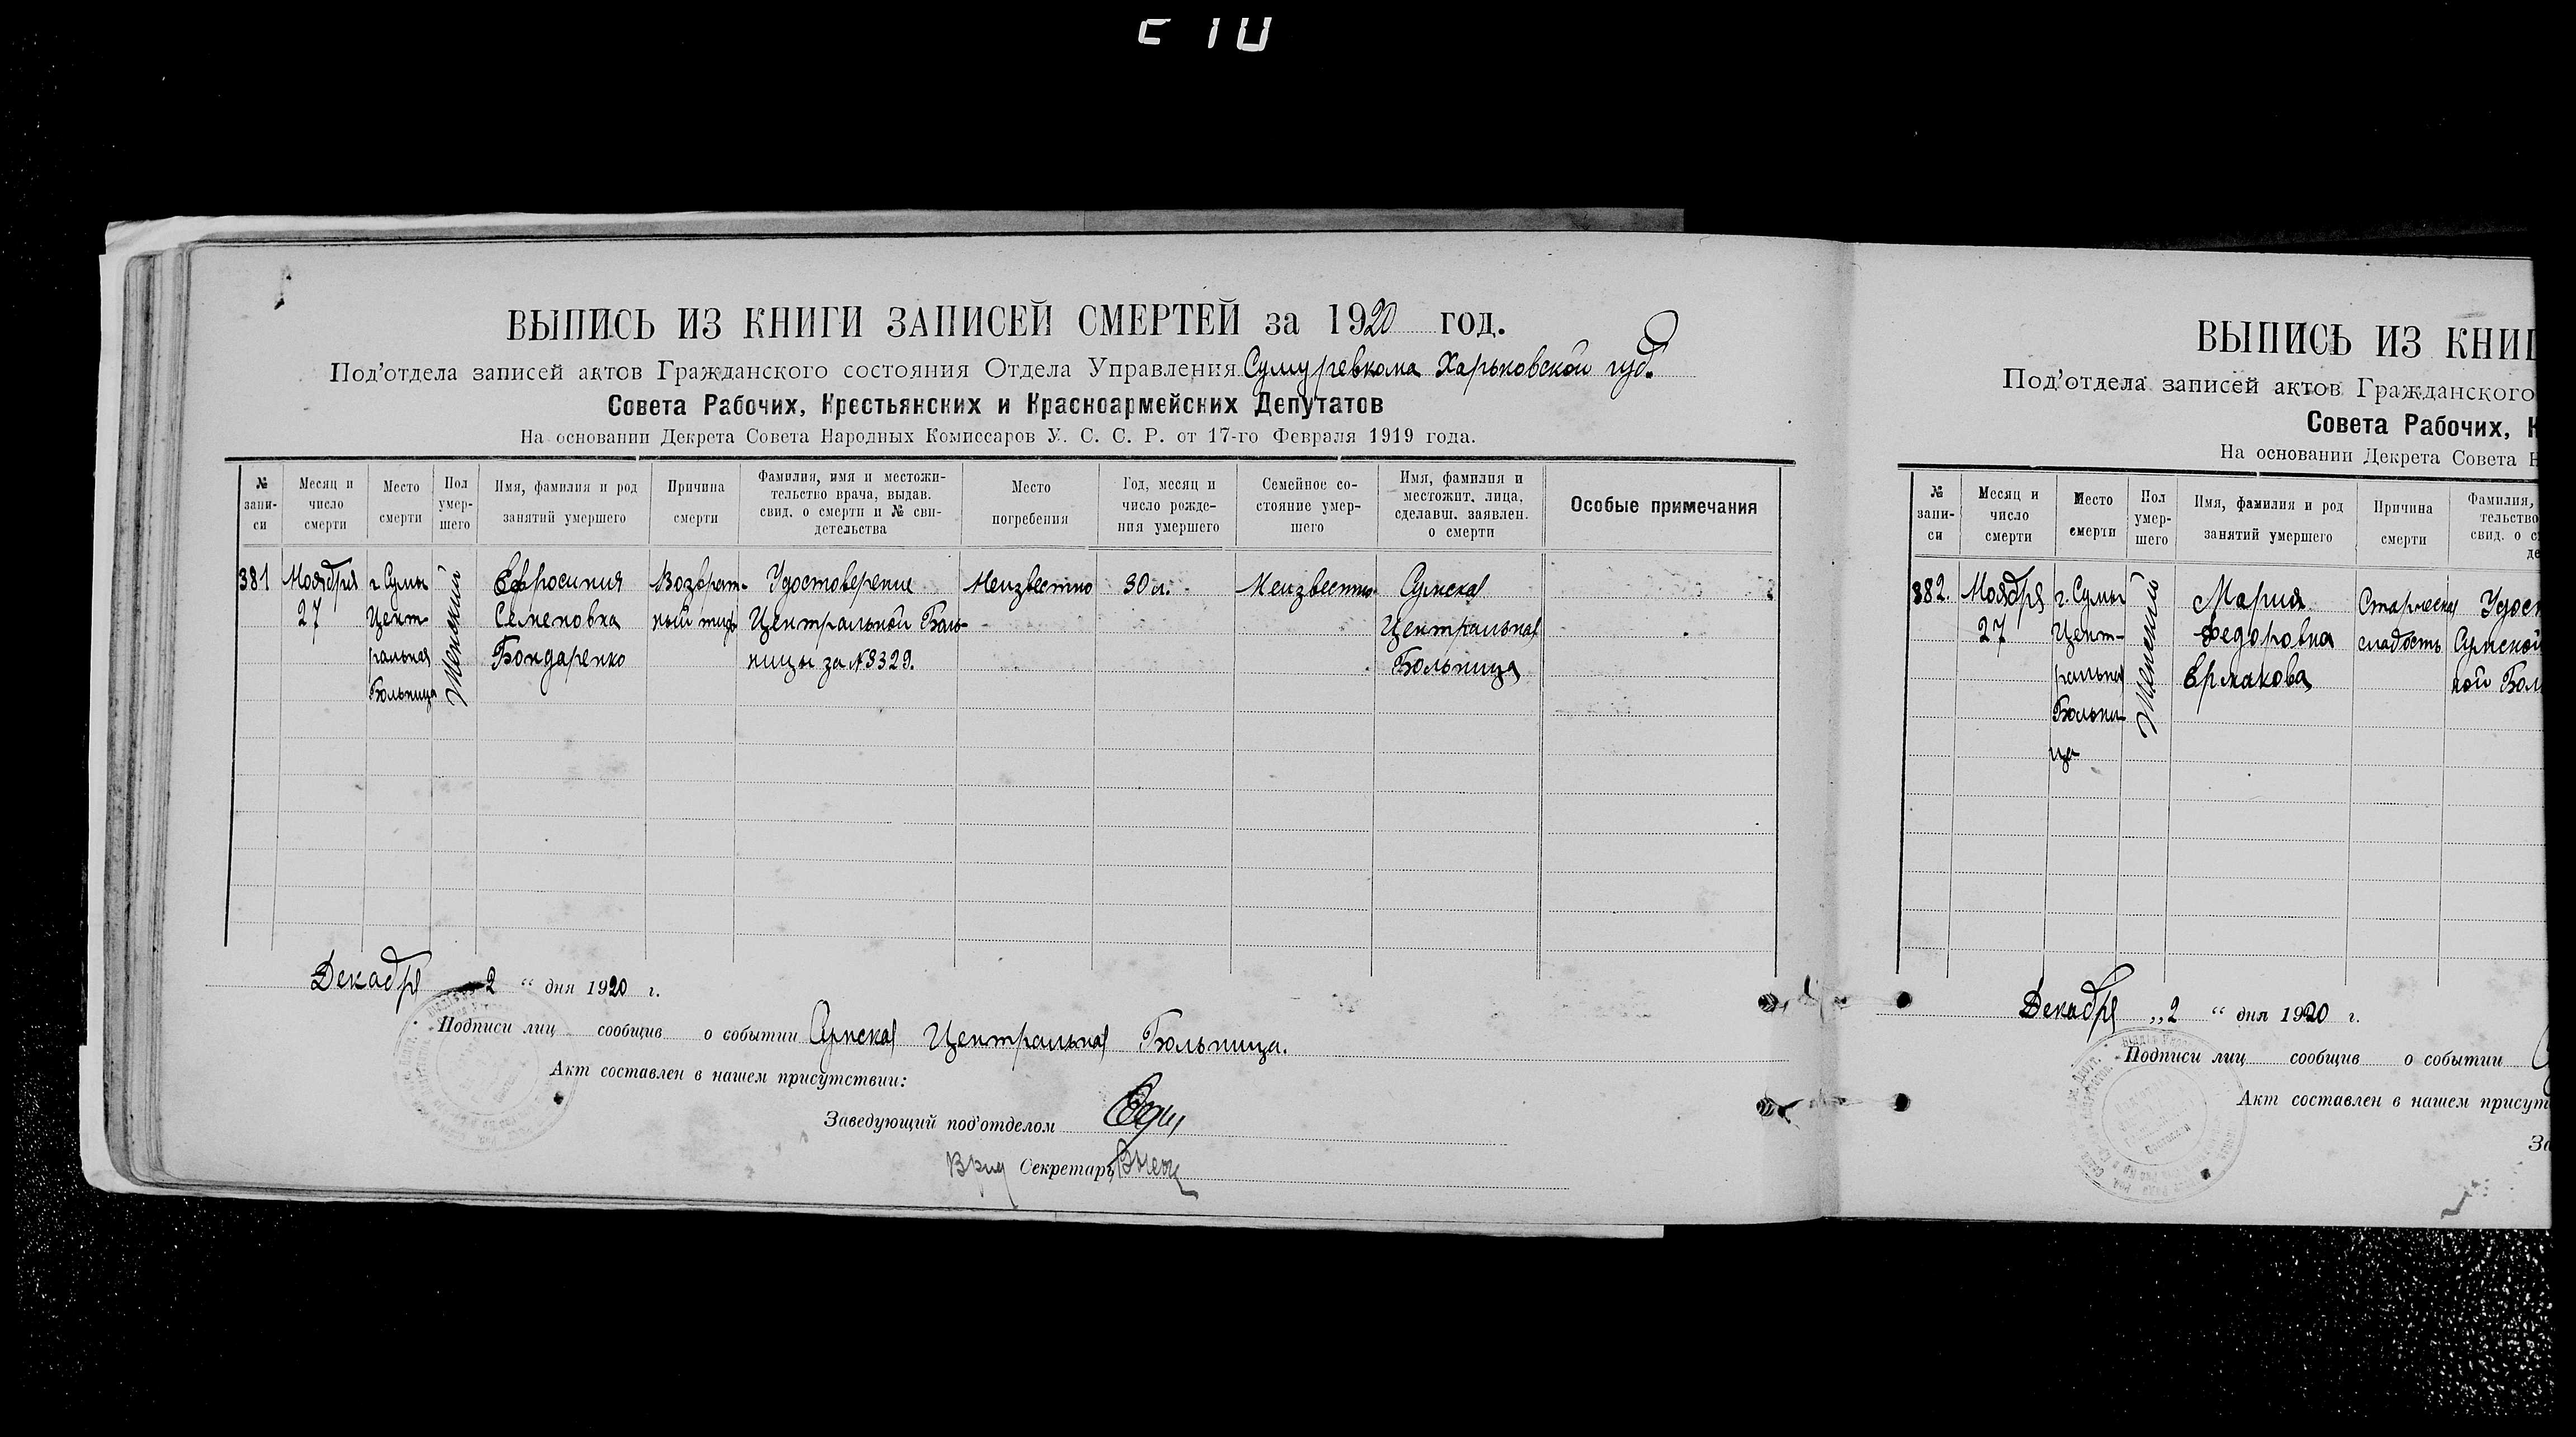 ВЫПИСЬ ИЗ КНИГИ ЗАПИСЕЙ СМЕРТЕЙ за 1920 год.
Под'отдела записей актов Гражданского состояния Отдела Управления Сумуревкома Харьковской губ.
Совета Рабочих, Крестьянских и Красноармейских Депутатов
На основании Декрета Совета Народных Комиссаров У. С. С. Р. от 17-го Февраля 1919 года.
№ запи-си
Месяц и число смерти
Место смерти
Пол умер-шего
Имя, фамилия и род занятий умершего
Причина смерти
Фамилия, имя и местожи-тельство врача, выдав. свид. о смерти и № сви-детельства
Место погребения
Год, месяц и число рожде-ния умершего
Семейное со-стояние умер-шего
Имя, фамилия и местожит. лица, сделавш. заявлен. о смерти
Особые примечания
381
Ноября
27
г. Сумы
Цент-
ральная
Больница
Женский
Ефросиния
Семеновна
Бондаренко
Возврат-
ный тиф
Удостоверение
Центральной Боль-
ницы за №3329.
Неизвестно
30 л.
Неизвестно
Сумская
Центральная
Больница
Декабря 2 “ дня 1920 г.
Подписи лиц сообщив о событии Сумская Центральная Больница.
Акт составлен в нашем присутствии:
Заведующий под'отделом
Врид Секретарь
ВЫПИСЬ ИЗ КНИГ
Под'отдела записей актов Гражданского
Совета Рабочих, К
На основании Декрета Совета Н
№ запи-си
Месяц и число смерти
Место смерти
Пол умер-шего
Имя, фамилия и род занятий умершего
Причина смерти
Фамилия,
тельство
свид. о с
де
382.
Ноября
27
г. Сумы
Цент-
ральная
Больни-
ца
Женский
Мария
Федоровна
Ермакова
Старческая
слабость
Удост
Сумской
ной Бол
Декабря „2 “ дня 1920 г.
Подписи лиц сообщив о событии С
Акт составлен в нашем присут
За